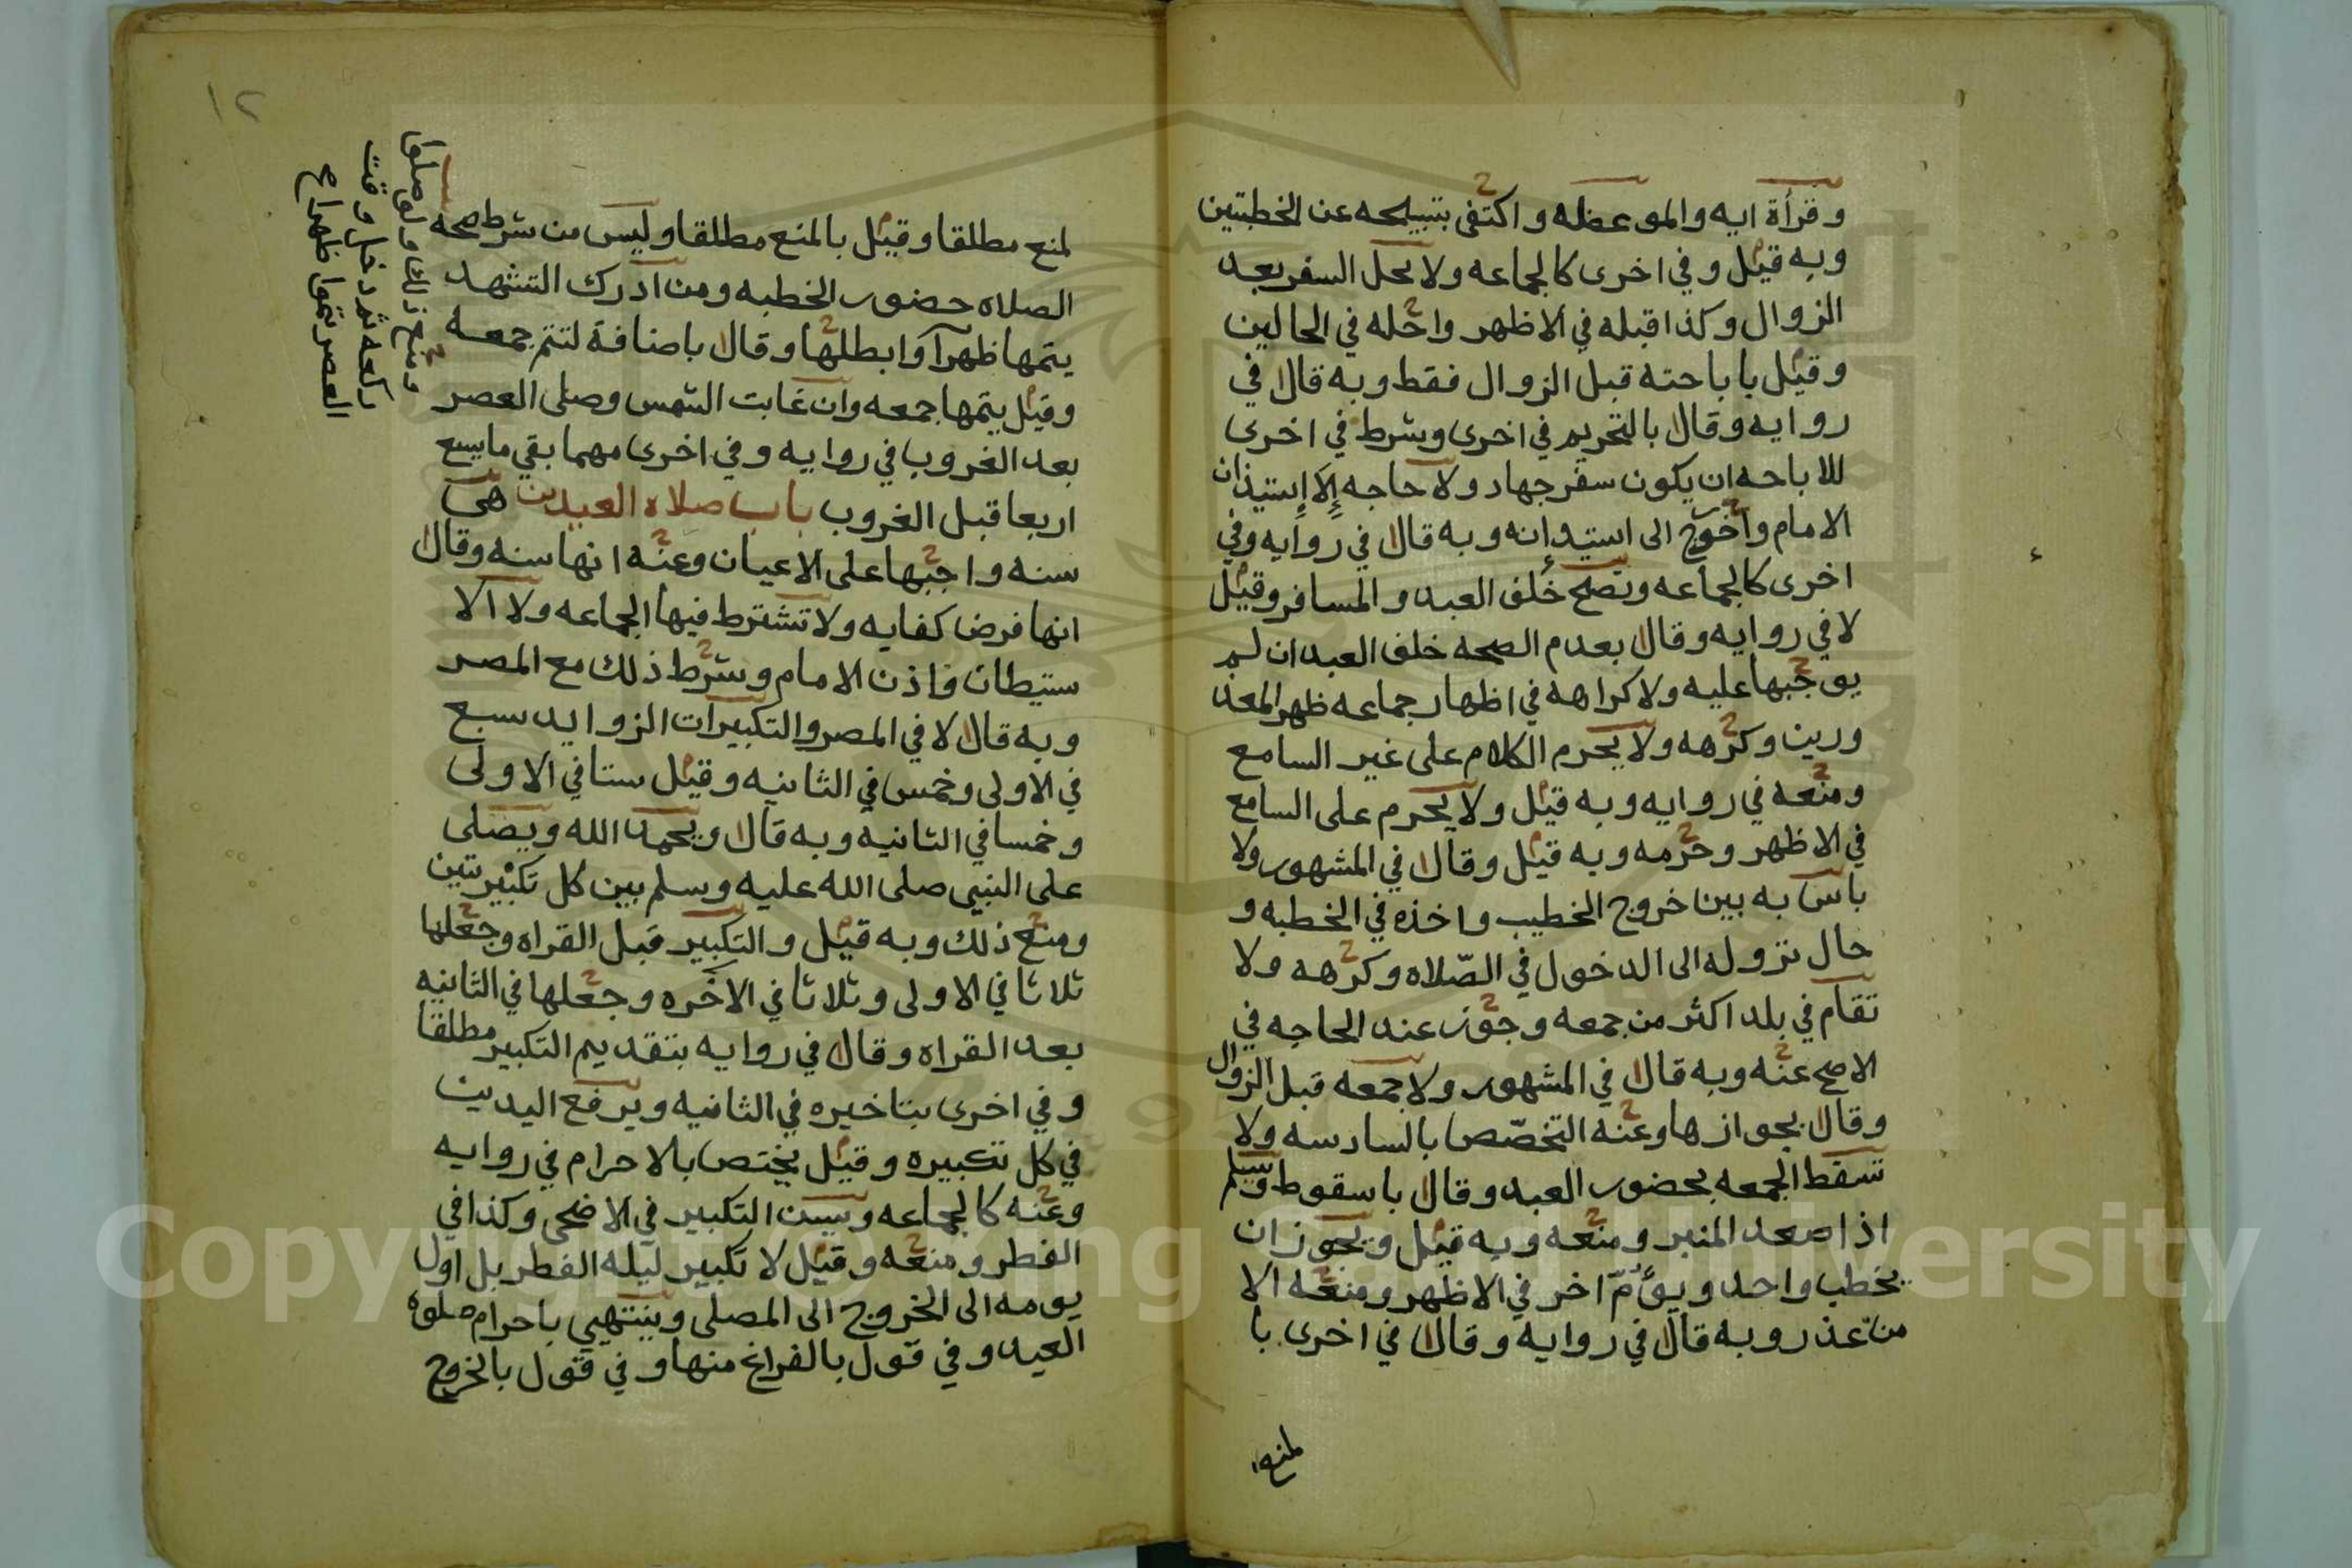 وقرأة ايه والموعظه واكتفى بتبيلحه عن الخطبتين
وبه قيل وفي اخرى كالجماعه ولا يحل السفر بعد
الزوال وكذا قبله في الاظهر واحله في الحالين
وقيل باباحته قبل الزوال فقط وبه قال في
روايه وقال بالتحريم في اخرى وشرط في اخرى
للاباحه ان يكون سفر جهاد ولا حاجه إلا إستيذان
الامام واحوج الى استيدإنه وبه قال في روايه وفي
اخرى كالجماعه وتصح خلف العبد والمسافر وقيل
لا في روايه وقال بعدم الصحه خلف العبد ان لم
يوجبها عليه ولا كراهه في اظهار جماعه ظهر المعذ
ورين وكرهه ولا يحرم الكلام على غير السامع
ومنعه في روايه وبه قيل ولا يحرم على السامع
في الاظهر وحرمه وبه قيل وقال في المشهور ولا
باس به بين خروج الخطيب واخذه في الخطبه و
حال نزوله الى الدخول في الصّلاه وكرهه ولا
تقام في بلد اكثر من جمعه وجوز عند الحاجه في
الاصح عنه وبه قال في المشهور ولا جمعه قبل الزوال
وقال بجوازها وعنه التخصّص بالسادسه ولا
تسقط الجمعه بحضور العبد وقال باسقوط ويسلم
اذا صعد المنبر ومنعه وبه قيل ويجوز ان
يخطب واحد ويؤمّ اخر في الاظهر ومنعه الا
من عذر وبه قال في روايه وقال في اخرى با
لمنع
١٢
لمنع مطلقا وقيل بالمنع مطلقا وليس من شرط صحه
الصلاه حضور الخطبه ومن ادرك التشهد
يتمها ظهرا وابطلها وقال باضافة لتتم جمعه
وقيل يتمها جمعه وان غابت الشمس وصلى العصر
بعد الغروب في روايه وفي اخرى مهما بقي ما يسع
اربعا قبل الغروب باب صلاه العيدين هى
سنه واجبها على الاعيان وعنه انها سنه وقال
انها فرض كفايه ولا تشترط فيها الجماعه ولا الا
ستيطان فاذن الامام وشرط ذلك مع المصر
وبه قال لا في المصر والتكبيرات الزوايد سبع
في الاولى وخمس في الثانيه وقيل ستا في الاولى
وخمسا في الثانيه وبه قال ويحمد الله ويصلى
على النبي صلى الله عليه وسلم بين كل تكبيرتين
ومنع ذلك وبه قيل والتكبير قبل القراه وجعلها
ثلاثا في الاولى وثلاثا في الاخره وجعلها في الثانيه
بعد القراه وقال في روايه بتقديم التكبير مطلقا
وفي اخرى بتاخيره في الثانيه ويرفع اليدين
في كل تكبيره وقيل يختص بالاحرام في روايه
وعنه كالجماعه ويسن التكبير في الاضحى وكذا في
الفطر ومنعه وقيل لا تكبير ليله الفطر بل اول
يومه الى الخروج الى المصلى وينتهي باحرام صلوة
العيد وفي قول بالفراغ منها وفي قول بالخروج
ومنع ذلك ولو صلوا
ركعه ثم دخل وقت
العصر يتموا ظهرا صح
Copyright © King Saud University